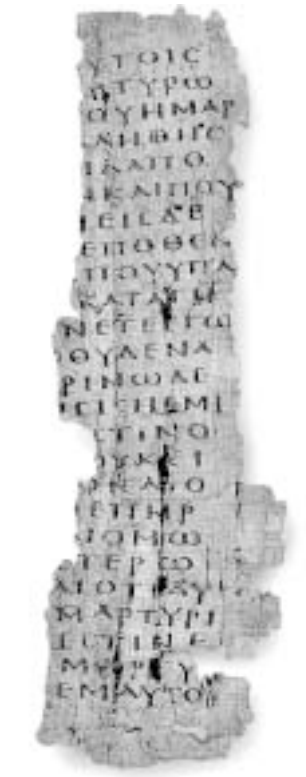 ΥΤΟΙС
ΤΥΡѠ
ΟΥΗΜΑΡ
ΛΗΘΗС
ΙΔΑΠΟ
ΚΑΙΠΟΥ
ΕΙСΔΕ
ΕΠΟΘΕΝ
ΠΟΥΥΠΑ
ΚΑΤΑΤΗ
ΝΕΤΕΕΓѠ
ΟΥΔΕΝΑ
ΡΙΝѠΔΕ
ΙСΙСΗΕΜΗ
СΤΙΝΟ
ΟΥΚΕΙ
ΑΙΟ
ΕΠΗΡ
ΝΟΜѠ
ΤΕΡѠ
ΑΙΟΤΙΔΥ
ΜΑΡΤΥΡΙ
ΕСΤΙΝΕ
ΜΑΡΤΥ
ΕΜΑΥΤΟΥ